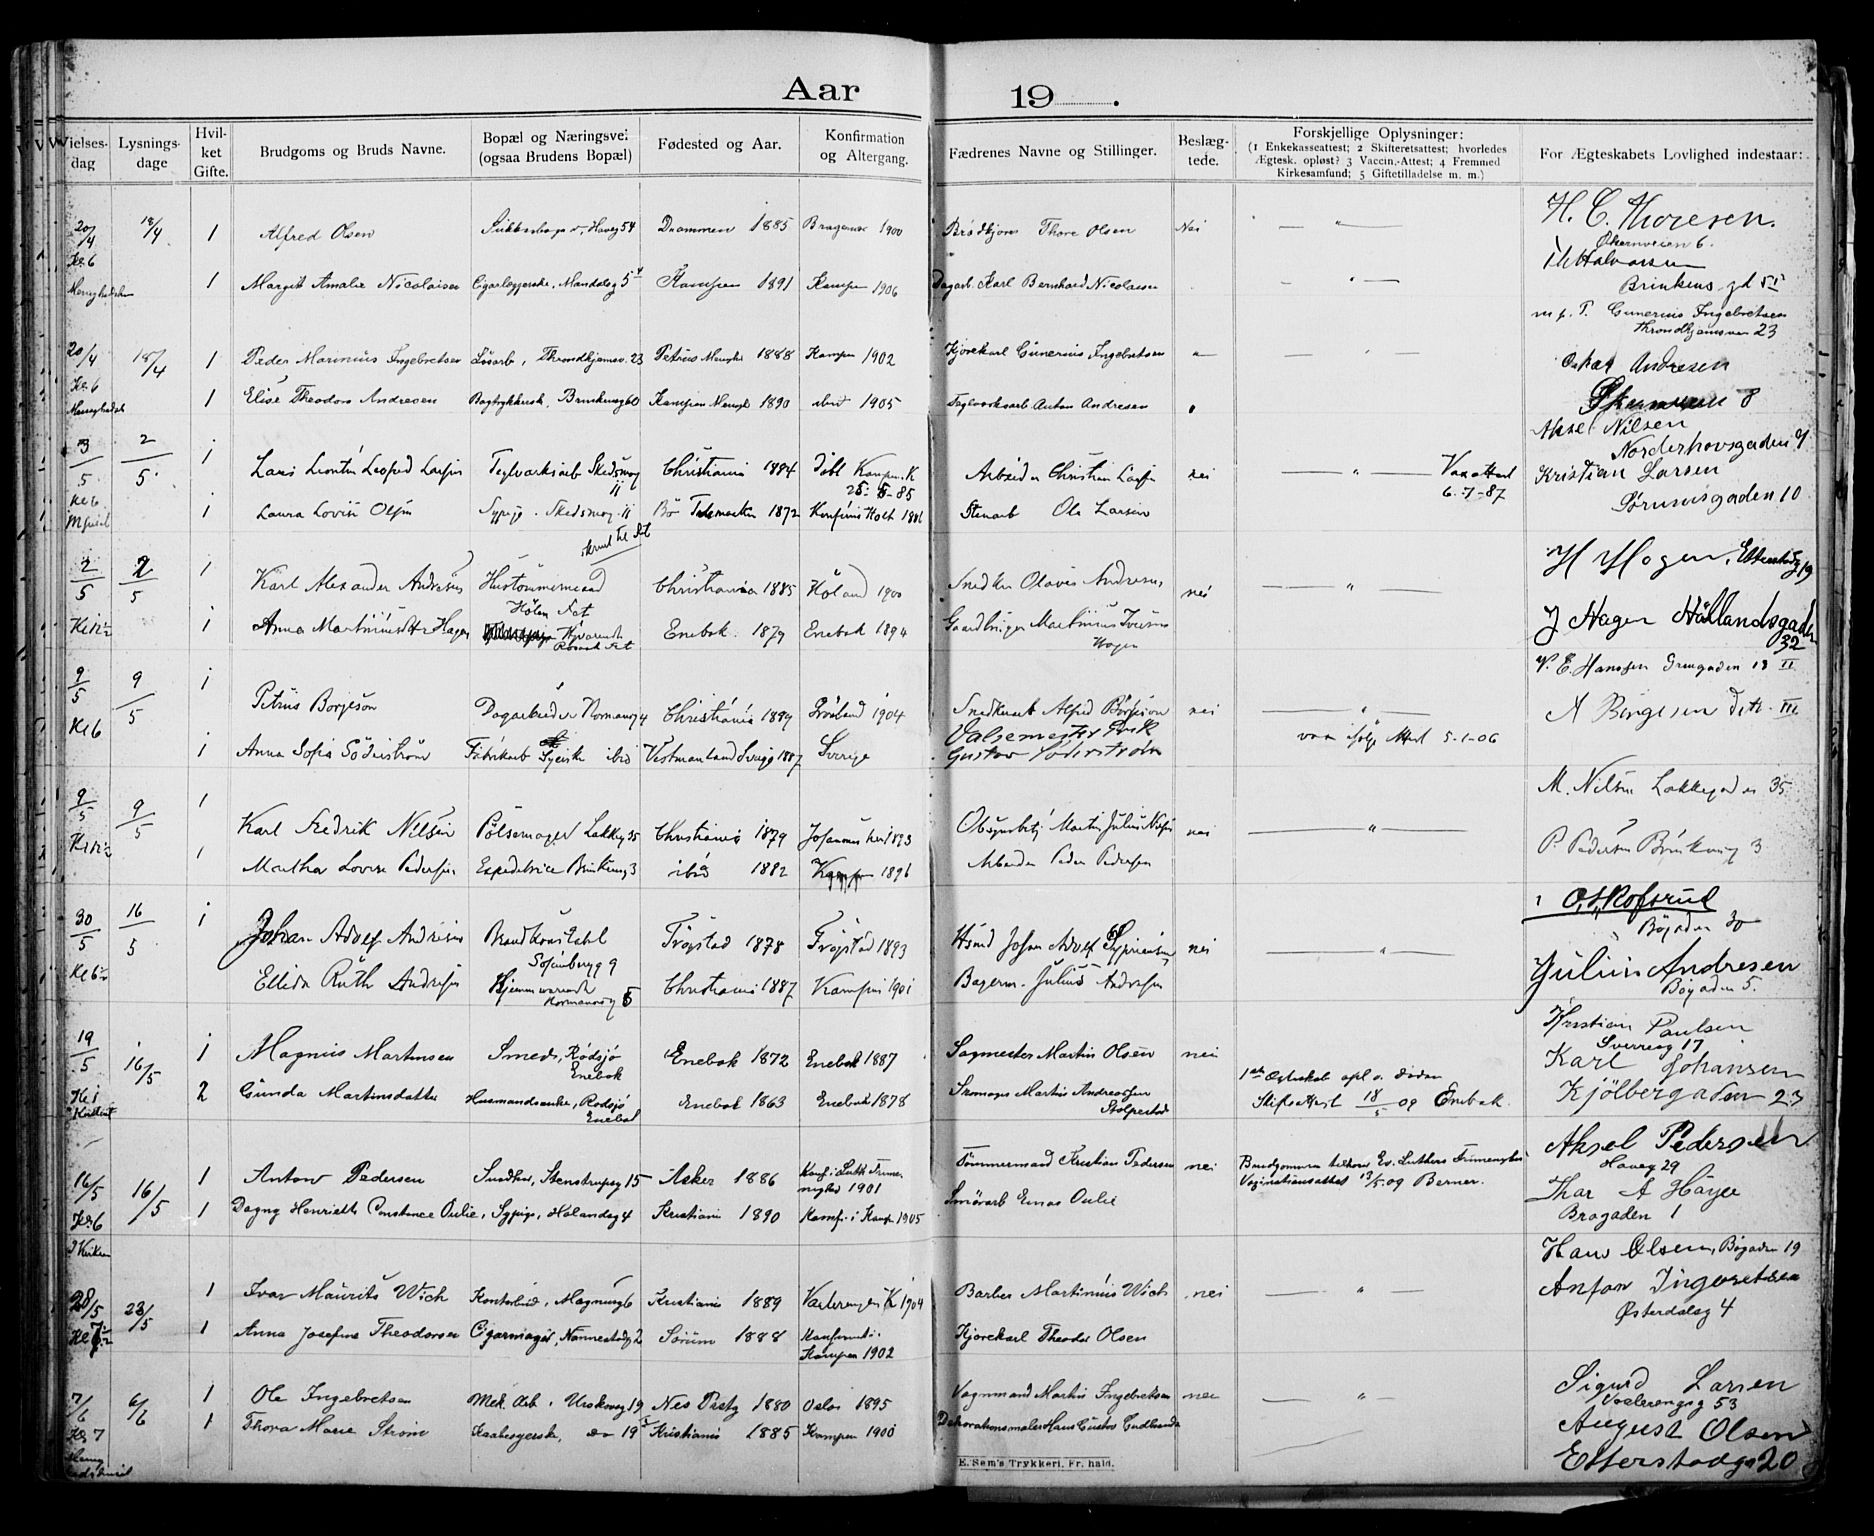 Aar 19 .
Vielsesdag
Lysningsdage
Hvilket Gifte.
Brudgoms og Bruds Navne.
Bopæl og Næringsvei (ogsaa Brudens Bopæl)
Fødested og Aar.
Konfirmation og Altergang.
Fædrenes Navne og Stillinger.
Beslægtede.
Forskjellige Oplysninger:
(1 Enkekasseattest; 2 Skifteretsattest; hvorledes
Ægtesk. opløst? 3 Vaccin.-Attest; 4 Fremmed
Kirkesamfund; 5 Giftetilladelse m. m.)
For Ægteskabets Lovlighed indestaar:
H. C. Thoresen.
Økernveien 6.
20/4 18/4 1 Alfred Olsen Haveg 54 Drammen 1885 Bragernes 1900 Brødkjører Thore Olsen Nei — " —
Kl. 6
1 Margit Amalie Nicolaisen Cigarlæggerske, Mandalsg 5 Kampen 1891 Kampen 1906 Dagarb. Karl Bernhard Nicolaisen — " —
Th Halvorsen
Brinkens gd 55
m. f. T. Gunerius Ingebretsen
Throndhjemsveien 23
20/4 18/4 1 Peder Marinius Ingebretsen Løsarb, Throndhjemsv. 23 Petrus Menighed 1888 Kampen 1902 Kjørekarl Gunerius Ingebretsen
Kl. 6
Oskar Andresen
1 Elise Theodora Andresen Brinkensg 60 Kampen Menigh 1890 ibid 1905 Teglverksarb Anton Andresen
Økernveien 8
Aksel Nilsen
Norderhovsgaden 9
3/5 2/5 1 Lars Leontin Leopold Larsen Teglverksarb Skedsmog 11 Christiania 1884 døbt Kampen K Arbeider Christian Larsen nei — " — Vaxattest
25-5-85 6-7-87
Kristian Larsen
Sørumsgaden 10
Kl 6
1 Laura Lovise Olsen Sypige. Skedsmog. 11 Bø Telemarken 1872 Konf i Holt 1886 Stenarb Ole Larsen
H Hagen, Etterstadg 19
2/5 2/5 1 Karl Alexander Andresen Hustømmermand Christiania 1885 Høland 1900 Snedker Olaves Andresen nei — " —
Hølen
Kl 1½ 1 Anna Hagen Enebak. 1879 Enebak 1894 Gaardbruger Martinius Iversen
Hagen
J Hagen Hållandsgaden
32
V. E. Hanssen Grøngaden 18 II
9/5 9/5 1 Petrus Borgeson Dagarbeider Normannsg 4 Christiania 1889 Grønland 1904 Snedkerarb Alfred Børgeson nei — " —
A Børgesen ditto III
Kl 6 1 Anna Sofia Söderström Fabrikarb ibid Vestmanland Sverige 1887 Sverige Valsemester Erik
Gustav Söderström
vax ifølge Attest 5-1-06
M. Nilsen Lakkegaden 35
9/5 9/5 1 Karl Fredrik Nilsen Pølsemager Lakkeg 35 Christiania 1879 Johannes Kirke 1893 Martin Julius Nilsen nei — " —
P. Pedersen Brinkensg 3
1 Martha Lovise Pedersen Expeditrice Brinkensg 3 ibid 1882 Kampen 1896 Arbeider Peder Pedersen
O. Skofsrud
Bøgaden 30
30/5 16/5 1 Johan Adolf Andresen Brandkonstabel Trøgstad 1878 Trøgstad 1893 Johan Adolf nei — " —
Sofienbergg 9
Julius Andresen
Bøgaden 5.
Kl 6½ Ellida Ruth Andresen Hjemmeværende Christiania 1887 Kampen 1901 Bagerm. Julius Andresen
Normannsg 5
Kristian Paulsen
Sverresg 17
19/5 16/5 1 Magnus Martinsen Smed, Rødsjø Enebak 1872 Enebak 1887 Sagmester Martin Olsen nei
Enebak
Karl Johansen
1ste Ægteskab opl. v. Døden
Kl 1 2 Gunda Martinsdatter Husmandsenke, Rødsjø Enebak 1863 Enebak 1878 Skomager Martin Andreassen
Enebak Stolpestad
Skifteattest 18/5 09 Enebak.
Kjölbergaden 23
Aksel Pedersen
Haveg 29
16/5 16/5 1 Anton Pedersen Snedker, Stenstrupsg 15 Asker 1886 Konf. i Luth Frimenighed 1901 Tømmermand Kristian Pedersen nei Brudgommen tilhører Ev. Luthers Frimenighed
Vaxinationsattest 13/5 09 Berner.
Thar A Höyer
Bragaden 1
Kl. 6 1 Dagny Henriette Constance Oulie, Sypige, Hølandsg 4 Kristiania 1890 Konf. i Kampen 1905 Smørarb Einar Oulie
I Kirken
Hans Olsen, Bøgaden 19
28/5 23/5 1 Ivar Mauritz Wich Kontorbud, Magnusg 6 Kristiania 1889 Vaalerengen K 1904 Barber Martinius Wich nei — " —
Anton Ingvoretsen
Østerdalsg 4
Kl 7½ 1 Anna Josefine Theodorsen Cigarmager, Nannestadg 2 Sørum 1888 Konfirmert i Kampen 1902 Kjørekarl Theodor Olsen
Sigurd Larsen
Vaalerengsg 53
7/6 6/6 1 Ole Ingebretsen Mek. Arb. Urskovsg 19 Nes Prstg 1880 Oslo 1895 Vognmand Martin Ingebretsen nei — " —
August Olsen
Kl. 7 1 Thora Marie Strøm Kaabesyerske, do 19 Kristiania 1885 Kampen 1900 Dekorationsmaler Hans Gustav Gudbrandsen
Etterstadgn 20
E. Sem's Trykkeri, Fr. hald.